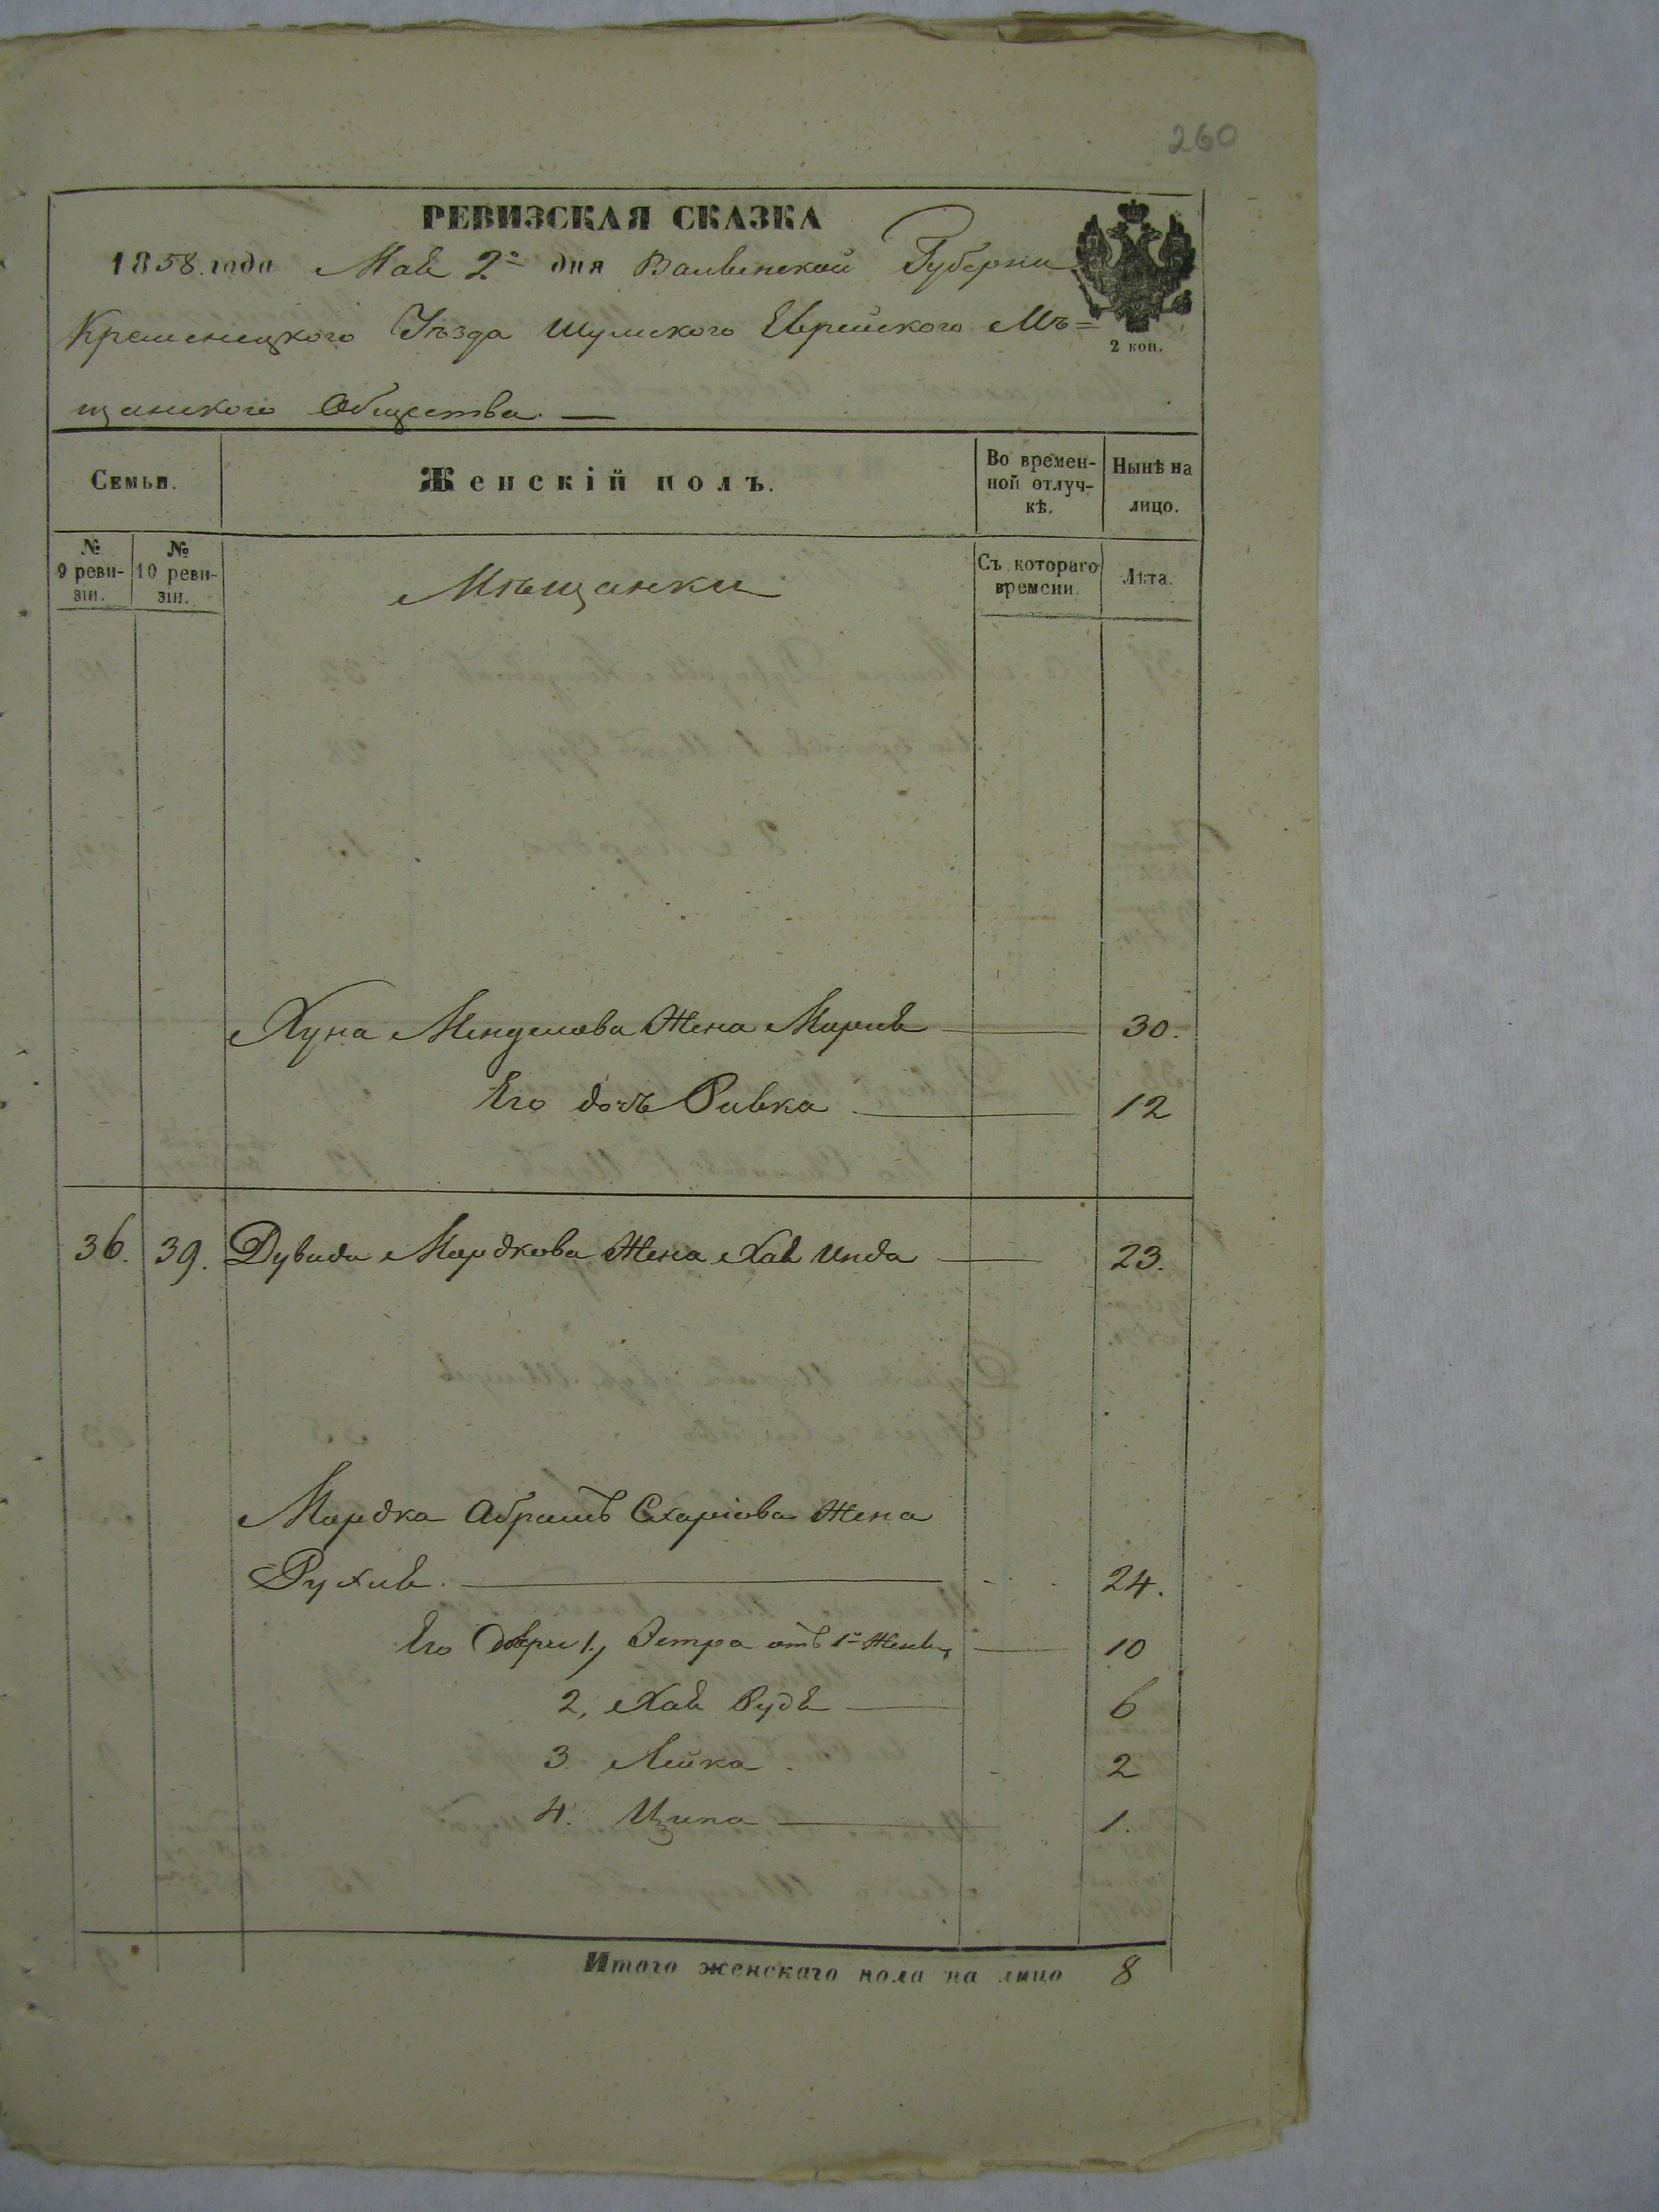 260
РЕВИЗСКАЯ СКАЗКА
1858 года Мая 2го дня Волынской Губерни
Кременецкого Уѣзда Шумского Еврейского Мѣ=
щанского Общества. —
2 коп.
Семьи. Женскій полъ. Во времен-ной отлуч-кѣ. Нынѣ на лицо.
№ 9 реви-зіи. № 10 реви-зіи. Мѣщанки Съ котораго времени. Лѣта.
Хуна Менделова Жена Мария 30.
Его дочь Ривка 12
36. 39. Дувида Мордкова Жена Хая Инда 23.
Мордка Абрамъ Схаріова Жена
Рухля. 24.
Его Дочри 1, Эстра отъ 1й Жены 10
2, Хая Рудя 6
3. Лейка. 2
4. Ципа 1.
Итого женскаго пола на лицо 8